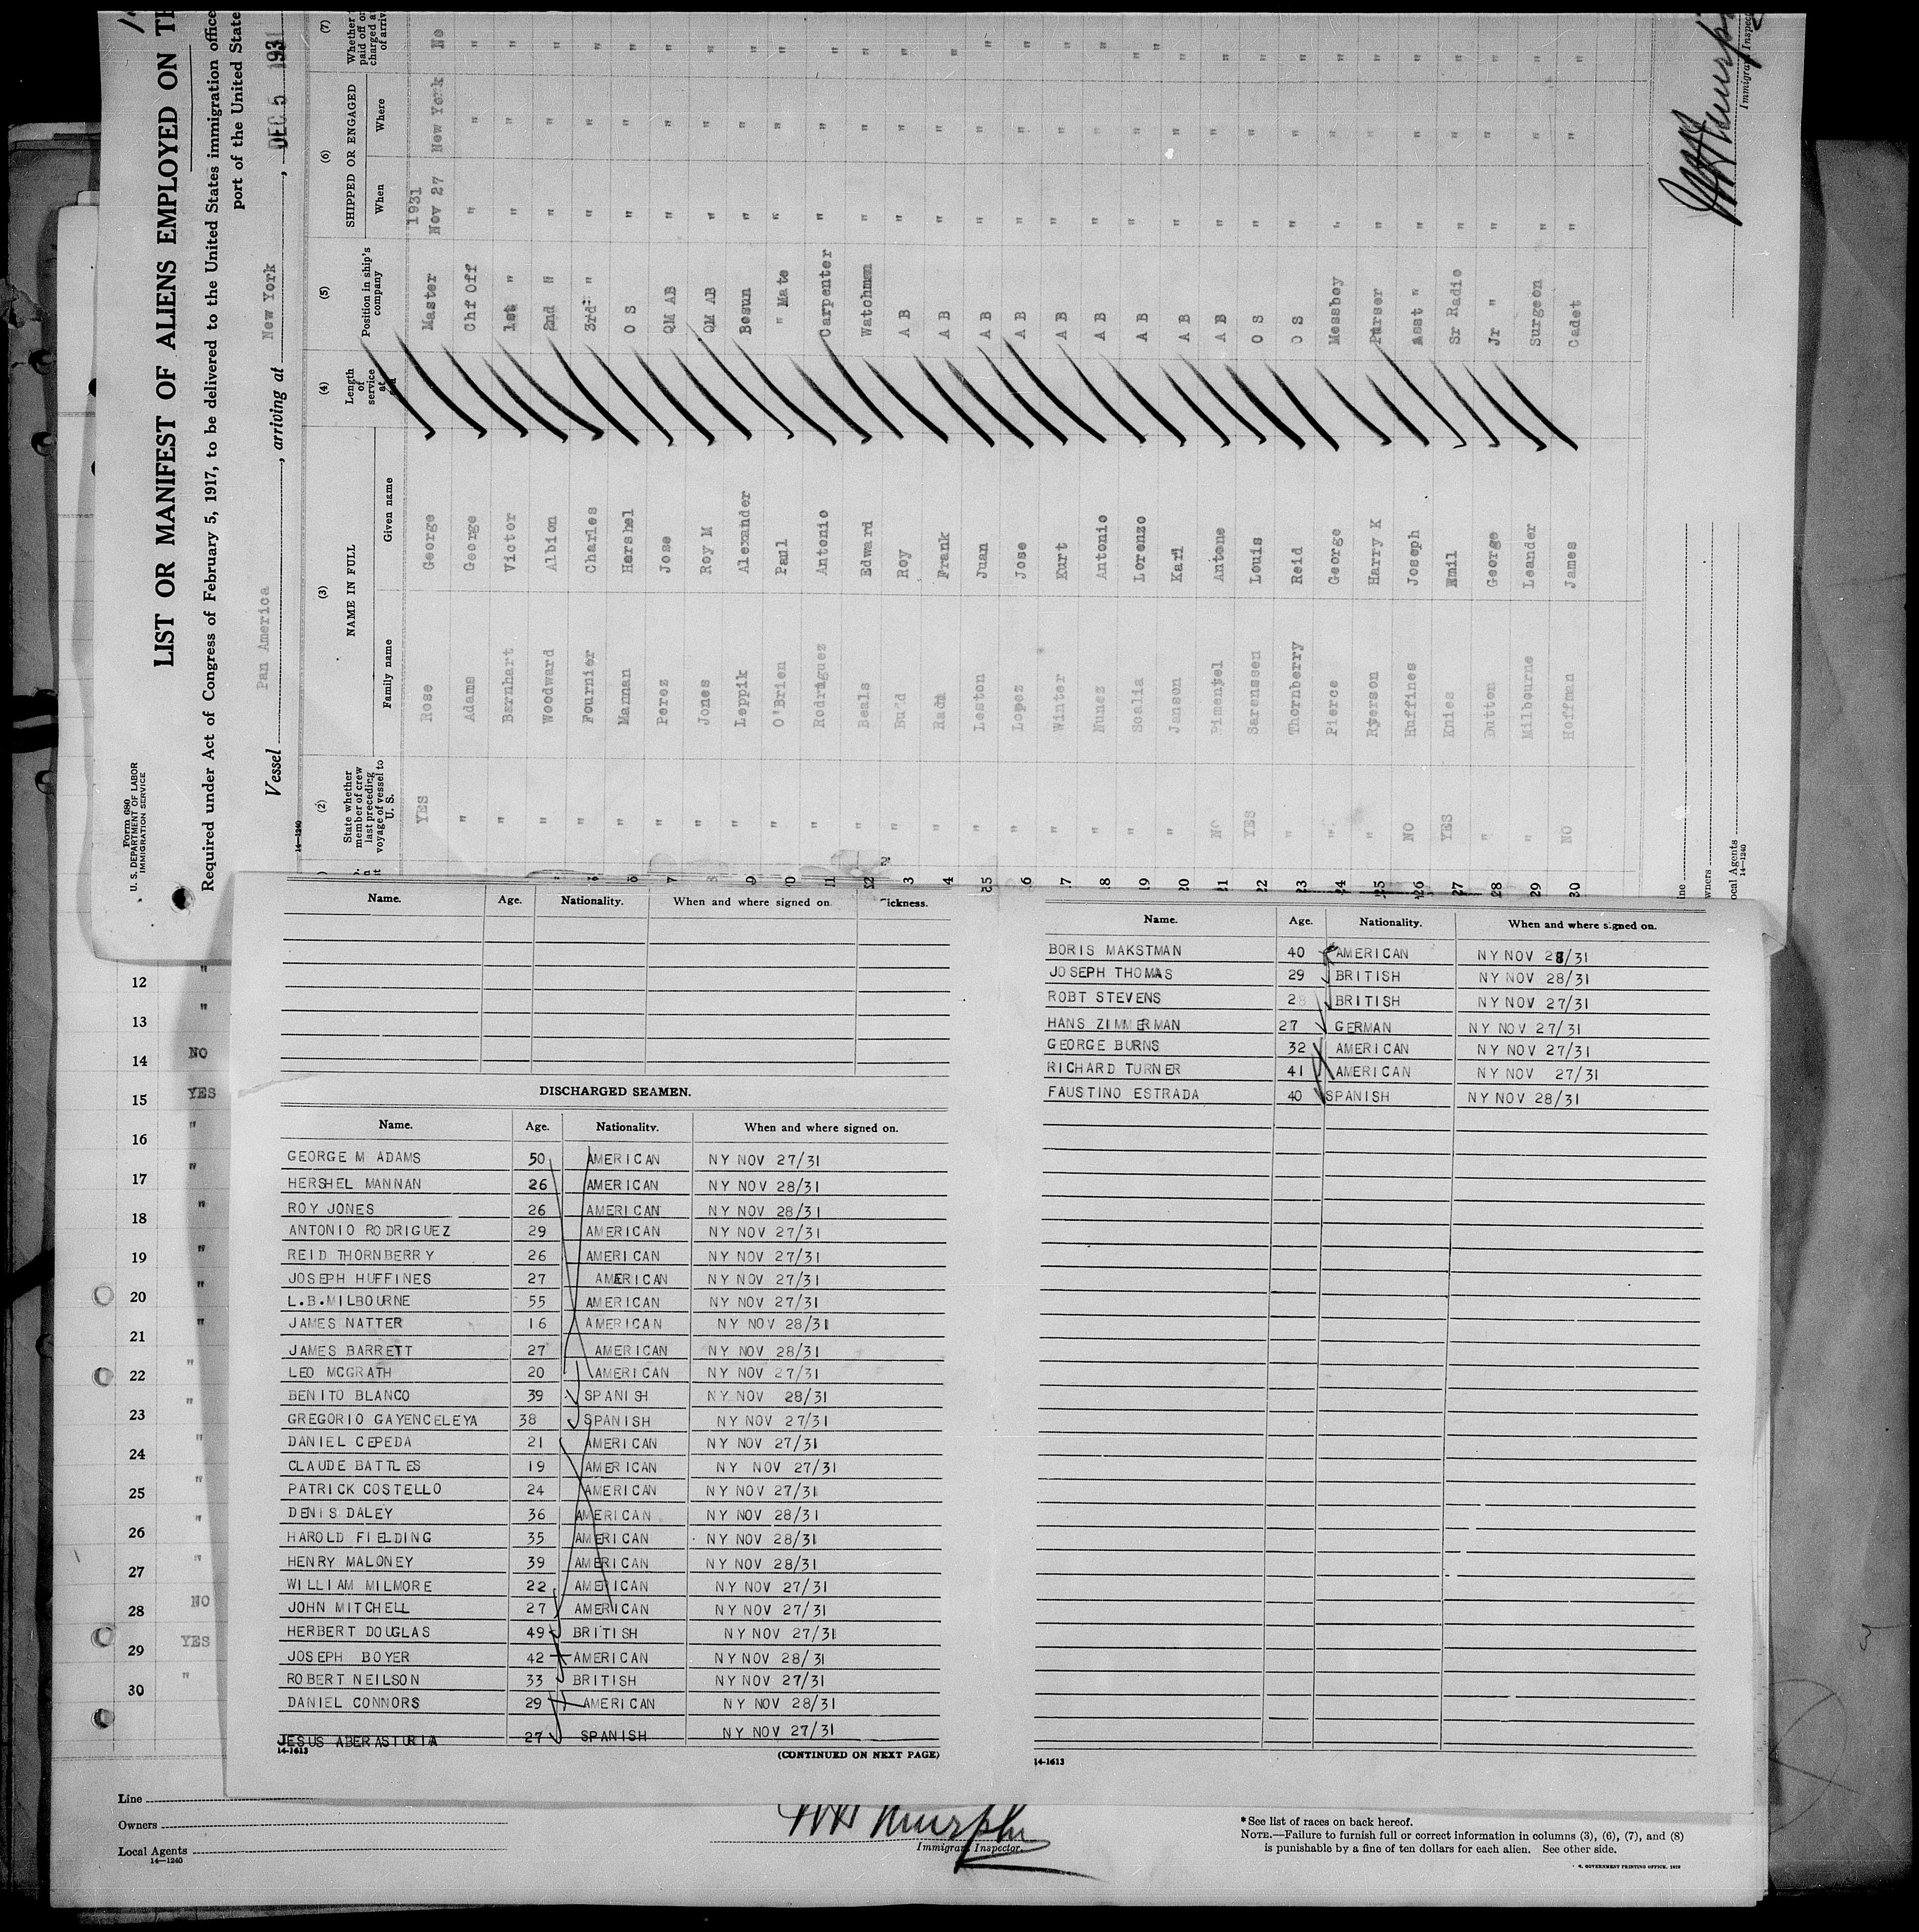 Form 680
U. S. DEPARTMENT OF LABOR
IMMIGRATION SERVICE
LIST OR MANIFEST OF ALIENS EMPLOYED ON
Required under Act of Congress of February 5, 1917, to be delivered to the United States immigration
port of the United
Vessel Pan America, arriving at New York, DEC 5 1931
14-1240
(2) (3) (4) (5) (6) (7)
State whether member of crew last preceding voyage of vessel to U. S. NAME IN FULL Length of service at Position in ship's company SHIPPED OR ENGAGED Whether paid off or
Family name Given name When Where
1931
YES Rose George Master Nov 27 New York No
" Adams George Chf Off " " "
" Barnhart Victor 1st " " " "
" Woodward Albion 2nd " " " "
" Fournier Charles 3rd " " " "
" Mannan Hershel O S " " "
7 " Perez Jose QM AB " " "
" Jones Roy M QM AB " " "
9 " Leppik Alexander Bosun " " "
" O'Brien Paul " Mate " " "
11 " Rodriguez Antonio Carpenter " " "
" Beals Edward Watchman " " "
3 " Budd Roy A B " " "
4 " Frank A B " " "
" Leston Juan A B " " "
6 " Lopez Jose A B " " "
17 " Winter Kurt A B " " "
18 " Nunez Antonio A B " " "
19 " Scalia Lorenzo A B " " "
20 " Janson Karl A B " " "
21 NO Pimentel Antone A B " " "
22 YES Sarenssen Louis O S " " "
23 " Thornberry Reid O S " " "
24 " Pierce George Messboy " " "
25 " Ryerson Harry K Purser " " "
26 NO Huffines Joseph Asst " " " "
27 YES Knies Emil Sr Radio " " "
28 " Dutton George Jr " " " "
29 " Milbourne Leander Surgeon " " "
30 NO Hoffman James Cadet " " "
Immigrant
Local Agents
14-1240
Name. Age. Nationality. When and where signed on.
DISCHARGED SEAMEN.
Name. Age. Nationality. When and where signed on.
GEORGE M ADAMS 50 AMERICAN NY NOV 27/31
HERSHEL MANNAN 26 AMERICAN NY NOV 28/31
ROY JONES 26 AMERICAN NY NOV 28/31
ANTONIO RODRIGUEZ 29 AMERICAN NY NOV 27/31
REID THORNBERRY 26 AMERICAN NY NOV 27/31
JOSEPH HUFFINES 27 AMERICAN NY NOV 27/31
L.B.MILBOURNE 55 AMERICAN NY NOV 27/31
JAMES NATTER 16 AMERICAN NY NOV 28/31
JAMES BARRETT 27 AMERICAN NY NOV 28/31
LEO MCGRATH 20 AMERICAN NY NOV 27/31
BENITO BLANCO 39 SPANISH NY NOV 28/31
GREGORIO GAYENCELEYA 38 SPANISH NY NOV 27/31
DANIEL CEPEDA 21 AMERICAN NY NOV 27/31
CLAUDE BATTLES 19 AMERICAN NY NOV 27/31
PATRICK COSTELLO 24 AMERICAN NY NOV 27/31
DENIS DALEY 36 AMERICAN NY NOV 28/31
HAROLD FIELDING 35 AMERICAN NY NOV 28/31
HENRY MALONEY 39 AMERICAN NY NOV 28/31
WILLIAM MILMORE 22 AMERICAN NY NOV 27/31
JOHN MITCHELL 27 AMERICAN NY NOV 27/31
HERBERT DOUGLAS 49 BRITISH NY NOV 27/31
JOSEPH BOYER 42 AMERICAN NY NOV 28/31
ROBERT NEILSON 33 BRITISH NY NOV 27/31
DANIEL CONNORS 29 AMERICAN NY NOV 28/31
JESUS ABERASTURIA 27 SPANISH NY NOV 27/31
14-1613
(CONTINUED ON NEXT PAGE)
Name. Age. Nationality. When and where signed on.
BORIS MAKSTMAN 40 AMERICAN NY NOV 28/31
JOSEPH THOMAS 29 BRITISH NY NOV 28/31
ROBT STEVENS 28 BRITISH NY NOV 27/31
HANS ZIMMERMAN 27 GERMAN NY NOV 27/31
GEORGE BURNS 32 AMERICAN NY NOV 27/31
RICHARD TURNER 41 AMERICAN NY NOV 27/31
FAUSTINO ESTRADA 40 SPANISH NY NOV 28/31
14-1613
"
12
"
13
14 NO
15 YES
16 "
17 "
18 "
19 "
20 "
21 "
22 "
23 "
24 "
25 "
26 "
27 "
28 NO
29 YES
30 "
Line
Owners
Local Agents
14-1240
Murphy
Immigrant Inspector.
* See list of races on back hereof.
NOTE.—Failure to furnish full or correct information in columns (3), (6), (7), and (8)
is punishable by a fine of ten dollars for each alien. See other side.
GOVERNMENT PRINTING OFFICE